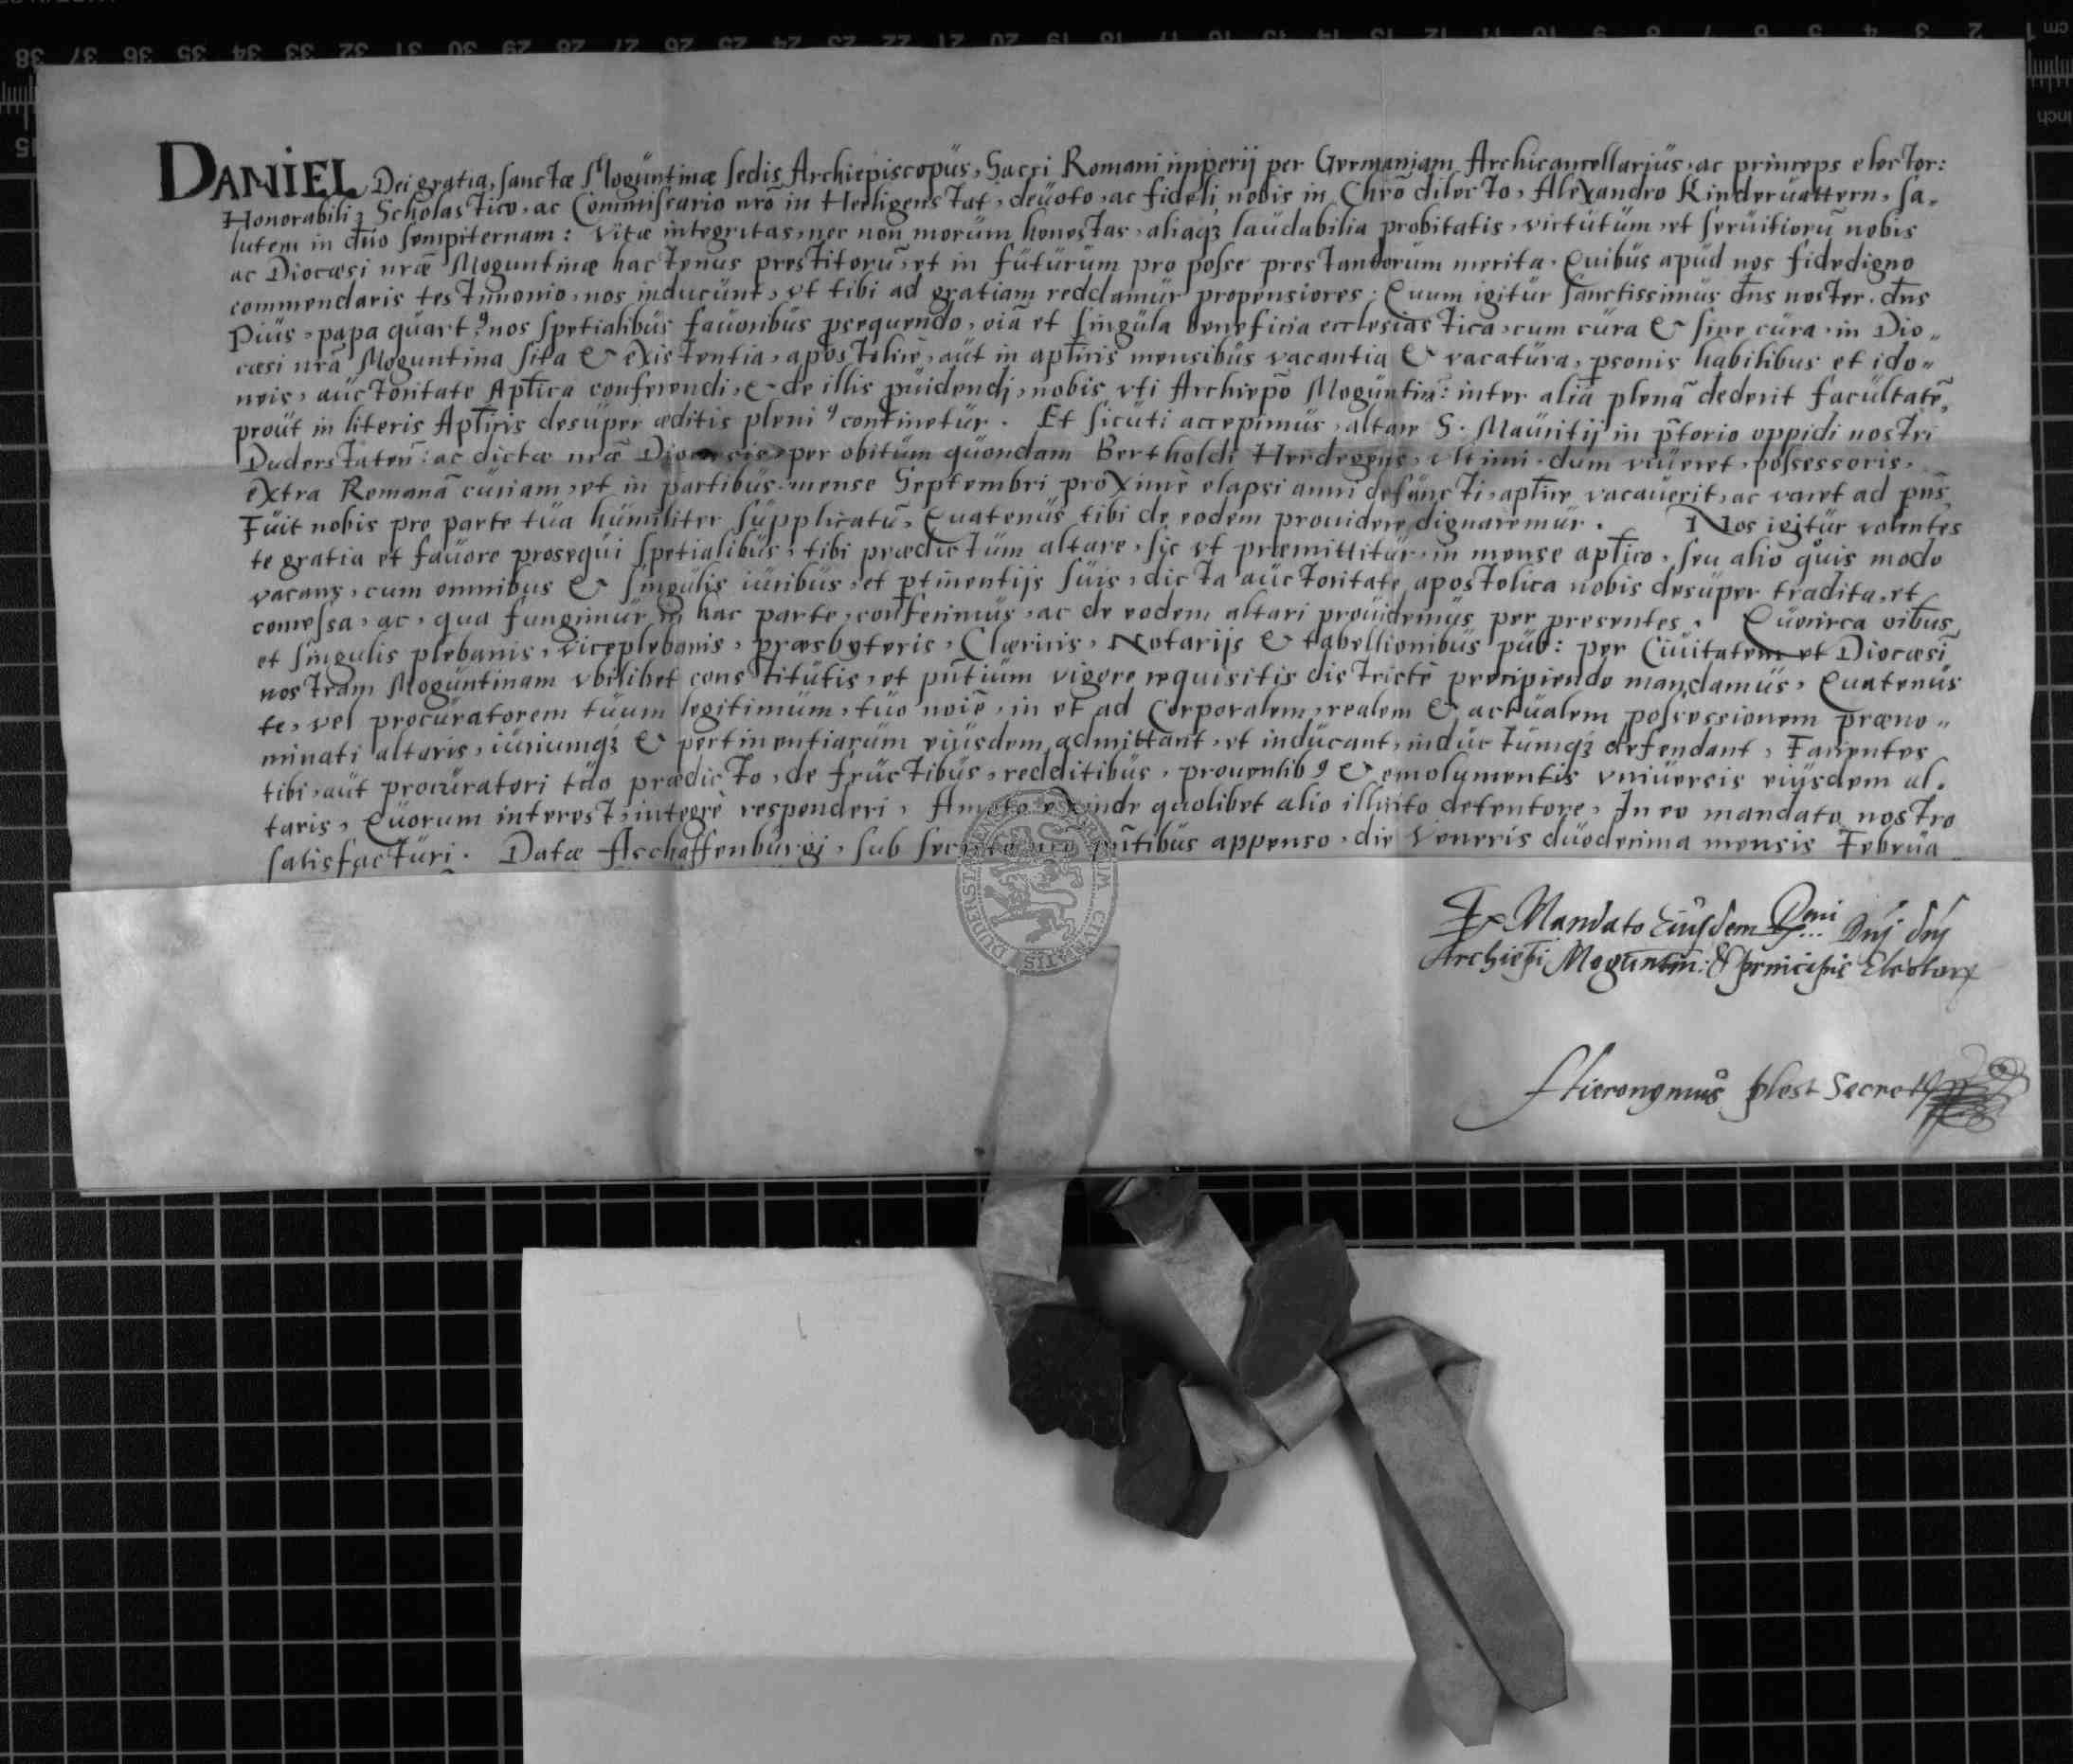 DANIEL Dei gratia, sanctæ Moguntinæ sedis Archiepiscopus, Sacri Romani imperij per Germaniam Archicancellarius, ac princeps elector:
Honorabili Scholastico, ac Commissario nr̄o in Heeligenstat, deuoto, ac fideli nobis in Chr̄o dilecto, Alexandro Kinderuattern, sa-
lutem in dn̄o sempiternam: Vitæ integritas, nec non morum honestas, aliaqꝫ laudabilia probitatis, virtutum, et seruitiorū nobis
ac Diocæsi nr̄æ Moguntinæ hactenus prestitorū, et in futurum pro posse prestandorum merita, Quibus apud nos fidedigno
commendaris testimonio, nos inducunt, vt tibi ad gratiam reddamur propensiores. Quum igitur sanctissimus dn̄s noster, dn̄s
Pius, papa quartꝰ nos spetialibus fauoribus ꝓsequendo, oīa et singula beneficia ecclesiastica, cum cura & sine cura, in Dio-
cæsi nr̄a Moguntina sita & existentia, apostolicè, aut in apl̄icis mensibus vacantia & vacatura, ꝑsonis habilibus et ido-
neis, auctoritate Apl̄ica conferendi, & de illis ꝓuidendi, nobis vti Archiepō Moguntin̄: inter alia plenā dederit facultatē,
prout in literis Apl̄icis desuper æditis pleniꝰ continetur. Et sicuti accepimus, altare S. Mauritij in p̄torio oppidi nostri
Duderstaten̄: ac dictæ nr̄æ Diocæsis, per obitum quondam Bertholdi Herdegens, vltimi, dum viueret, possessoris,
extra Romanā curiam, et in partibus, mense Septembri proximè elapsi anni defuncti, apl̄ice vacauerit, ac vacet ad pn̄s
Fuit nobis pro parte tua humiliter supplicatū, Quatenus tibi de eodem prouidere dignaremur. Nos igitur volentes
te gratia et fauore prosequi spetialibus, tibi prædictum altare, sic vt præmittitur, in mense apl̄ico, seu alio quis modo
vacans, cum omnibus & singulis iuribus, et ꝑtinentijs suis, dicta auctoritate apostolica nobis desuper tradita, et
comessa, ac, qua fungimur in hac parte, conferimus, ac de eodem altari prouidemus per presentes. Quocirca oībus
et singulis plebanis, viceplebanis, præsbyteris, Clæricis, Notarijs & tabellionibus pub: per Ciuitatem et Diocæsī
nostram Moguntinam vbilibet constitutis, et pn̄tium vigore requisitis districtè precipiendo mandamus, Quatenus
te, vel procuratorem tuum legitimum, tuo noīe, in et ad corporalem, realem & actualem possessionem præno-
minati altaris, iuriumqꝫ & pertinentiarum eiusdem admittant, et inducant, inductumqꝫ defendant, Facientes
tibi, aut procuratori tuo prædicto, de fructibus, redditibus, prouentibꝰ & emolumentis vniuersis eiusdem al-
taris, Quorum interest, integrè responderi, Amoto exinde quolibet alio illicito detentore, In eo mandato nostro
satisfacturi. Datæ Aschaffenburgi, sub secreto nr̄o pn̄tibus appenso, die Veneris duodecima mensis Februa-
Ex Mandato Eiusdem Dn̄i Dn̄i
Archiep̄i Moguntin: & principis Electoris
Hieronymus Secret